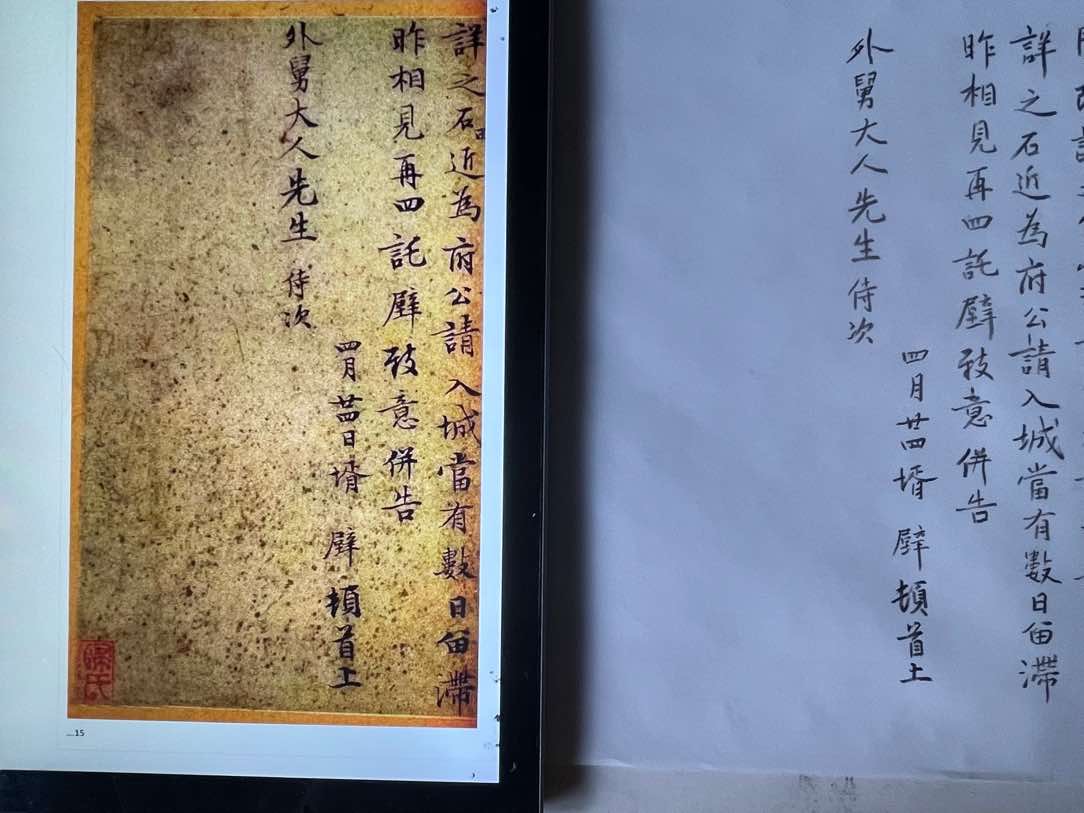 詳之石田近為府公請入城當有數日畱滯
昨相見再四託壁致意併告
外舅大人先生侍次
四月廿四日壻壁頓首上
15
詳之石近為府公請入城當有數日畱滯
昨相見再四託壁致意併告
外舅大人先生侍次
四月廿四壻壁頓首上